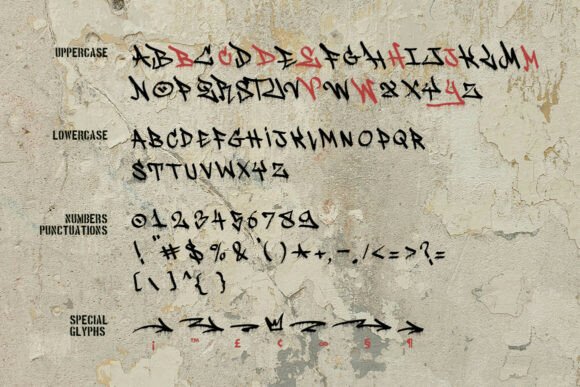 UPPERCASE ABBCCDDEEFGHHIJJKLMM
NOPQRSTUVVWWXXYYZ
LOWERCASE ABCDEFGHIJKLMNOPQR
STTUVWXYZ
NUMBERS 0123456789
PUNCTUATIONS ! " # $ % & ' ( ) * + , - . / < = > ? =
[ \ ] ^ { }
SPECIAL
GLYPHS
¡ ™ £ ¢ ∞ § ¶